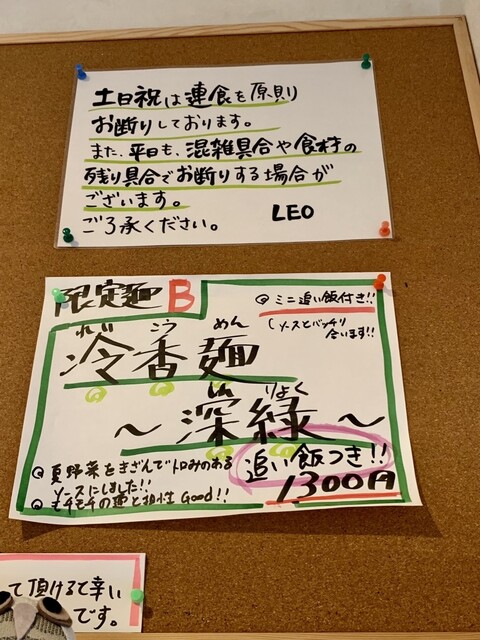 土日祝は連食を原則
お断りしております。
また、平日も、混雑具合や食材の
残り具合でお断りする場合が
ございます。
ご了承ください。
LEO
限定麺B
◎ミニ追い飯付き!!
(ソースとバッチリ
合います!!
れい こう めん
冷香麺
しん りょく
～深緑～
追い飯つき!!
1300円
◎夏野菜をきざんでトロみのある
ソースにしました!!
◎モチモチの麺と相性Good!!
て頂けると幸い
です。